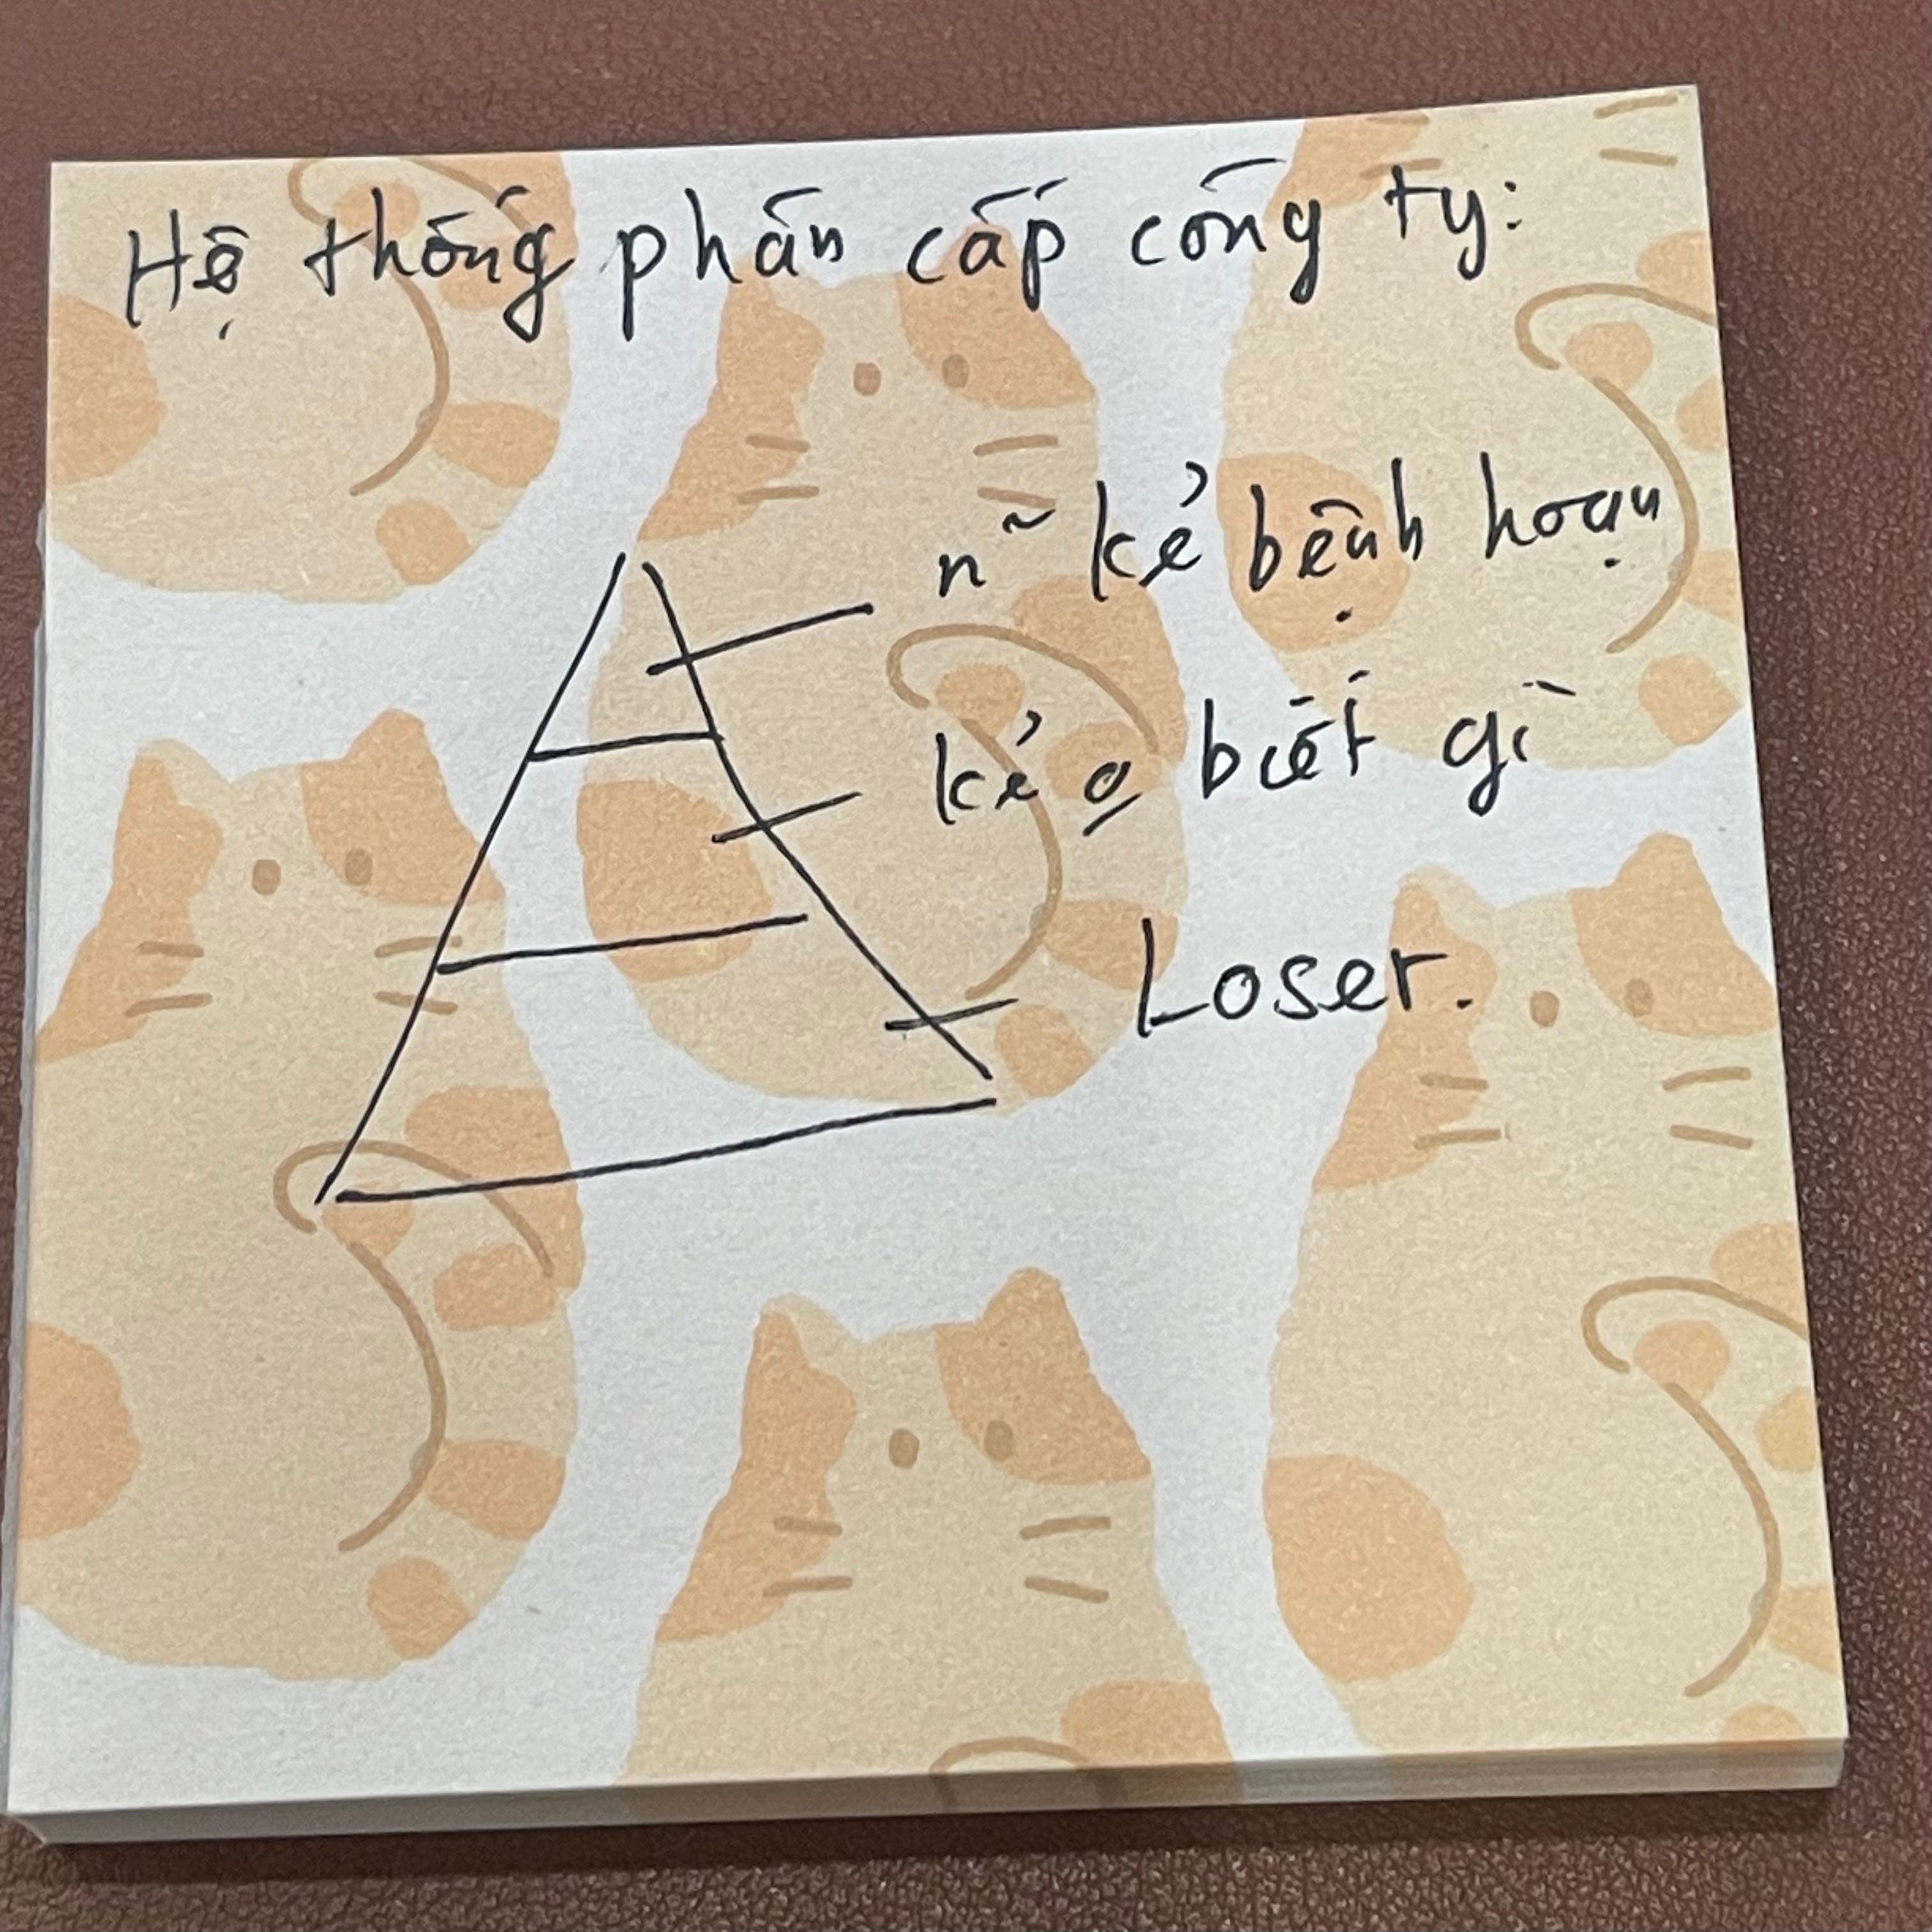 Hệ thống phân cấp công ty:
n~ kẻ bệnh hoạn
kẻ o biết gì
Loser.